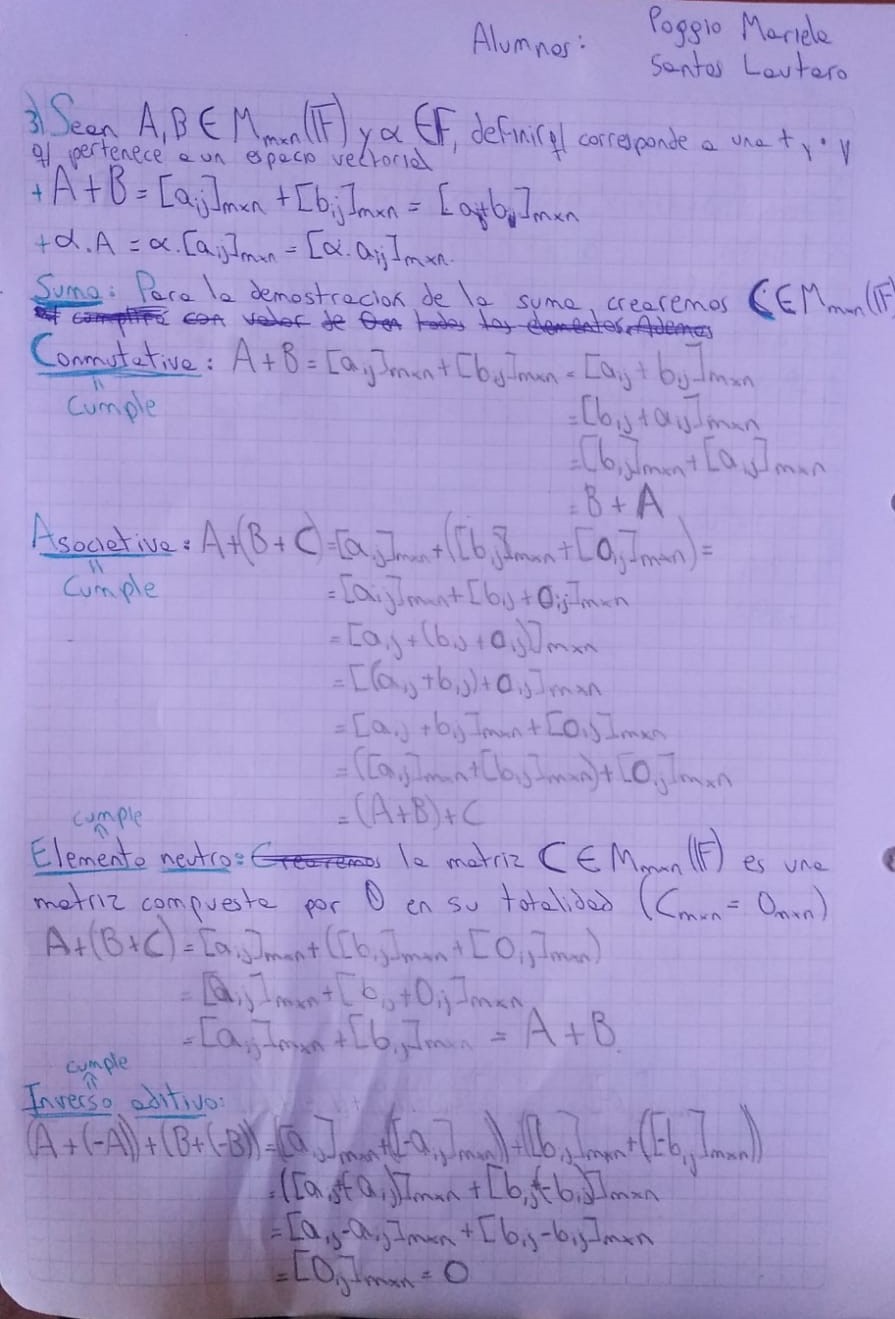 Alumnos: Poggio Mariela
Santos Lautaro
3) Sean A, B ∈ Mmxn(F) y α ∈ F, definir q/ corresponde a una + y · y
q/ pertenece a un espacio vectorial
+ A + B = [aij]mxn + [bij]mxn = [aij+bij]mxn
+ α.A = α.[aij]mxn = [α.aij]mxn.
Suma: Para la demostracion de la suma, crearemos C ∈ Mmxn(F)
con valor de todos los elementos. Ademas
Conmutativa: A + B = [aij]mxn + [bij]mxn = [aij + bij]mxn
Cumple = [bij + aij]mxn
= [bij]mxn + [aij]mxn
= B + A
Asociativa: A+(B+C) = [aij]mxn + ([bij]mxn + [0ij]mxn) =
Cumple = [aij]mxn + [bij + 0ij]mxn
= [aij + (bij + 0ij)]mxn
= [(aij + bij) + 0ij]mxn
= [aij + bij]mxn + [0ij]mxn
= ([aij]mxn + [bij]mxn) + [0ij]mxn
cumple = (A+B)+C
Elemento neutro: Crearemos la matriz C ∈ Mmxn(F) es una
matriz compuesta por 0 en su totalidad (Cmxn = 0mxn)
A+(B+C) = [aij]mxn + ([bij]mxn + [0ij]mxn)
= [aij]mxn + [bij + 0ij]mxn
= [aij]mxn + [bij]mxn = A + B.
cumple
Inverso aditivo:
(A + (-A)) + (B + (-B)) = [aij]mxn + ([-aij]mxn) + ([bij]mxn + ([-bij]mxn))
= ([aij+(-aij)]mxn + [bij+(-bij)]mxn
= [aij-aij]mxn + [bij-bij]mxn
= [0ij]mxn = 0